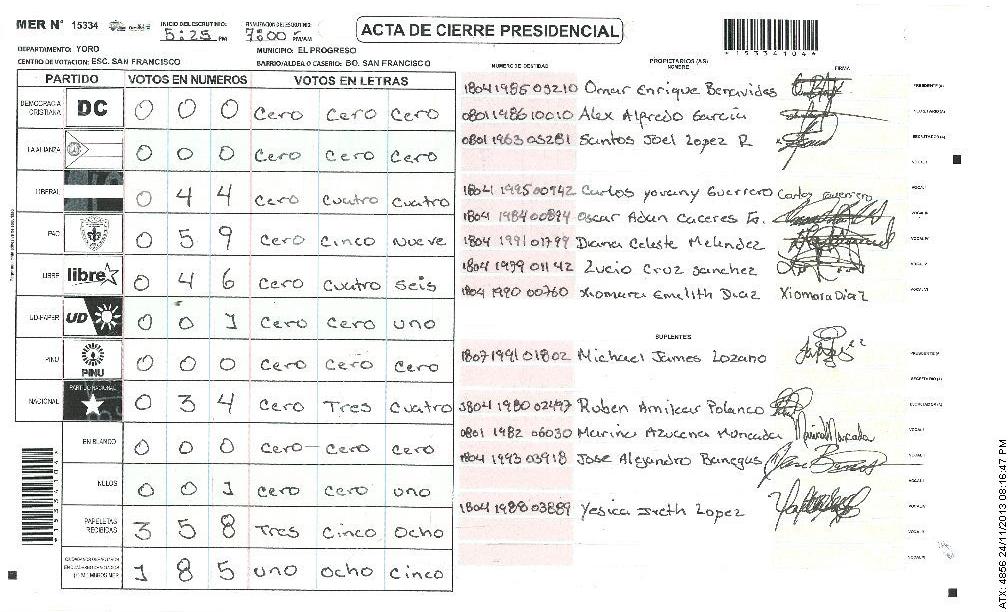 MER N° 15334
INICIO DEL ESCRUTINIO: 5:25 PM
FINALIZACION DEL ESCRUTINIO: 7:00 PM/AM
ACTA DE CIERRE PRESIDENCIAL
*1533410 4*
DEPARTAMENTO: YORO
MUNICIPIO: EL PROGRESO
CENTRO DE VOTACION: ESC. SAN FRANCISCO
BARRIO/ALDEA O CASERIO: BO. SAN FRANCISCO
PARTIDO VOTOS EN NUMEROS VOTOS EN LETRAS
DEMOCRACIA CRISTIANA DC 0 0 0 Cero Cero Cero
LA ALIANZA 0 0 0 Cero Cero Cero
LIBERAL 0 4 4 Cero Cuatro Cuatro
PAC 0 5 9 Cero Cinco Nueve
LIBRE libre 0 4 6 Cero Cuatro Seis
UD-FAPER UD 0 0 1 Cero Cero Uno
PINU PINU 0 0 0 Cero Cero Cero
NACIONAL PARTIDO NACIONAL 0 3 4 Cero Tres Cuatro
EN BLANCO 0 0 0 Cero Cero Cero
NULOS 0 0 1 Cero Cero Uno
PAPELETAS RECIBIDAS 3 5 8 Tres Cinco Ocho
1 8 5 Uno Ocho Cinco
NUMERO DE IDENTIDAD
PROPIETARIOS (AS)
NOMBRE
FIRMA
1804 1985 03210 Omar Enrique Benavides PRESIDENTE (A)
0801 1986 10010 Alex Alfredo Garcia SECRETARIO (A)
0801 1963 05281 Santos Joel Lopez R ESCRUTADOR (A)
VOCAL I
1804 1995 00942 Carlos yovany Guerrero Carlos Guerrero VOCAL II
1804 1984 00894 Oscar Adan Caceres VOCAL III
1804 1991 01799 Diana Celeste Melendez VOCAL IV
1804 1979 01142 Lucio Cruz Sanchez VOCAL V
1804 1990 00760 Xiomara Emelith Diaz Xiomara Diaz VOCAL VI
SUPLENTES
1807 1991 01802 Michael James Lozano PRESIDENTE (A)
SECRETARIO (A)
1804 1980 02497 Ruben Amilcar Polanco ESCRUTADOR (A)
0801 1982 06030 Marina Azucena Moncada VOCAL I
1804 1993 03918 Jose Alejandro Banegas VOCAL II
VOCAL III
1804 1988 03889 Yesica Ireth Lopez VOCAL IV
VOCAL V
VOCAL VI
ATX: 4856 24/11/2013 08:16:47 PM